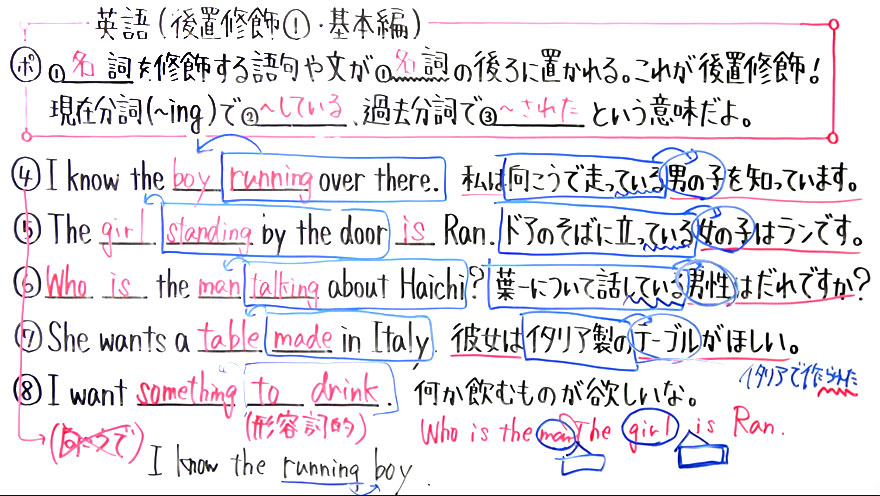 英語(後置修飾①・基本編)
ポ ①名詞を修飾する語句や文が①名詞の後ろに置かれる。これが後置修飾!
現在分詞(~ing)で②~している、過去分詞で③~された という意味だよ。
④I know the boy running over there. 私は向こうで走っている男の子を知っています。
⑤The girl standing by the door is Ran. ドアのそばに立っている女の子はランです。
⑥Who is the man talking about Haichi? 葉一について話している男性はだれですか?
⑦She wants a table made in Italy. 彼女はイタリア製のテーブルがほしい。
イタリアで作られた
⑧I want something to drink. 何か飲むものが欲しいな。
(向こうで) (形容詞的) Who is the man The girl is Ran.
I know the running boy.